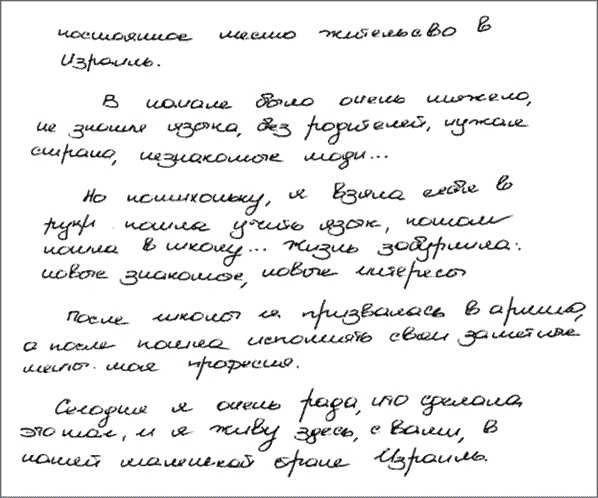 постоянное место жительсво в
Израиль.
В начале было очень тяжело,
не зноние языка, без родителей, чужая
страна, незнакомые люди...
Но потихоньку, я взяла себя в
руки пошла учить язык, потом
пошла в школу... Жизнь забурлила:
новые знакомые, новые интересы
После школы я призвалась в армию,
а после пошла исполнять свои заметные
мечты. моя професия.
Сегодня я очень рада, что сделала
это шаг, и я живу здесь, с вами, в
нашей маленькой стране Израиль.